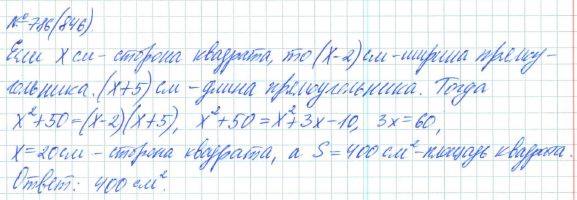 № 786(846)
Если x см - сторона квадрата, то (x-2) см - ширина прямоу-
гольника. (x+5) см - длина прямоугольника. Тогда
x²+50=(x-2)(x+5), x²+50=x²+3x-10, 3x=60,
x=20 см - сторона квадрата, а S=400 см² - площадь квадрата.
Ответ: 400 см².